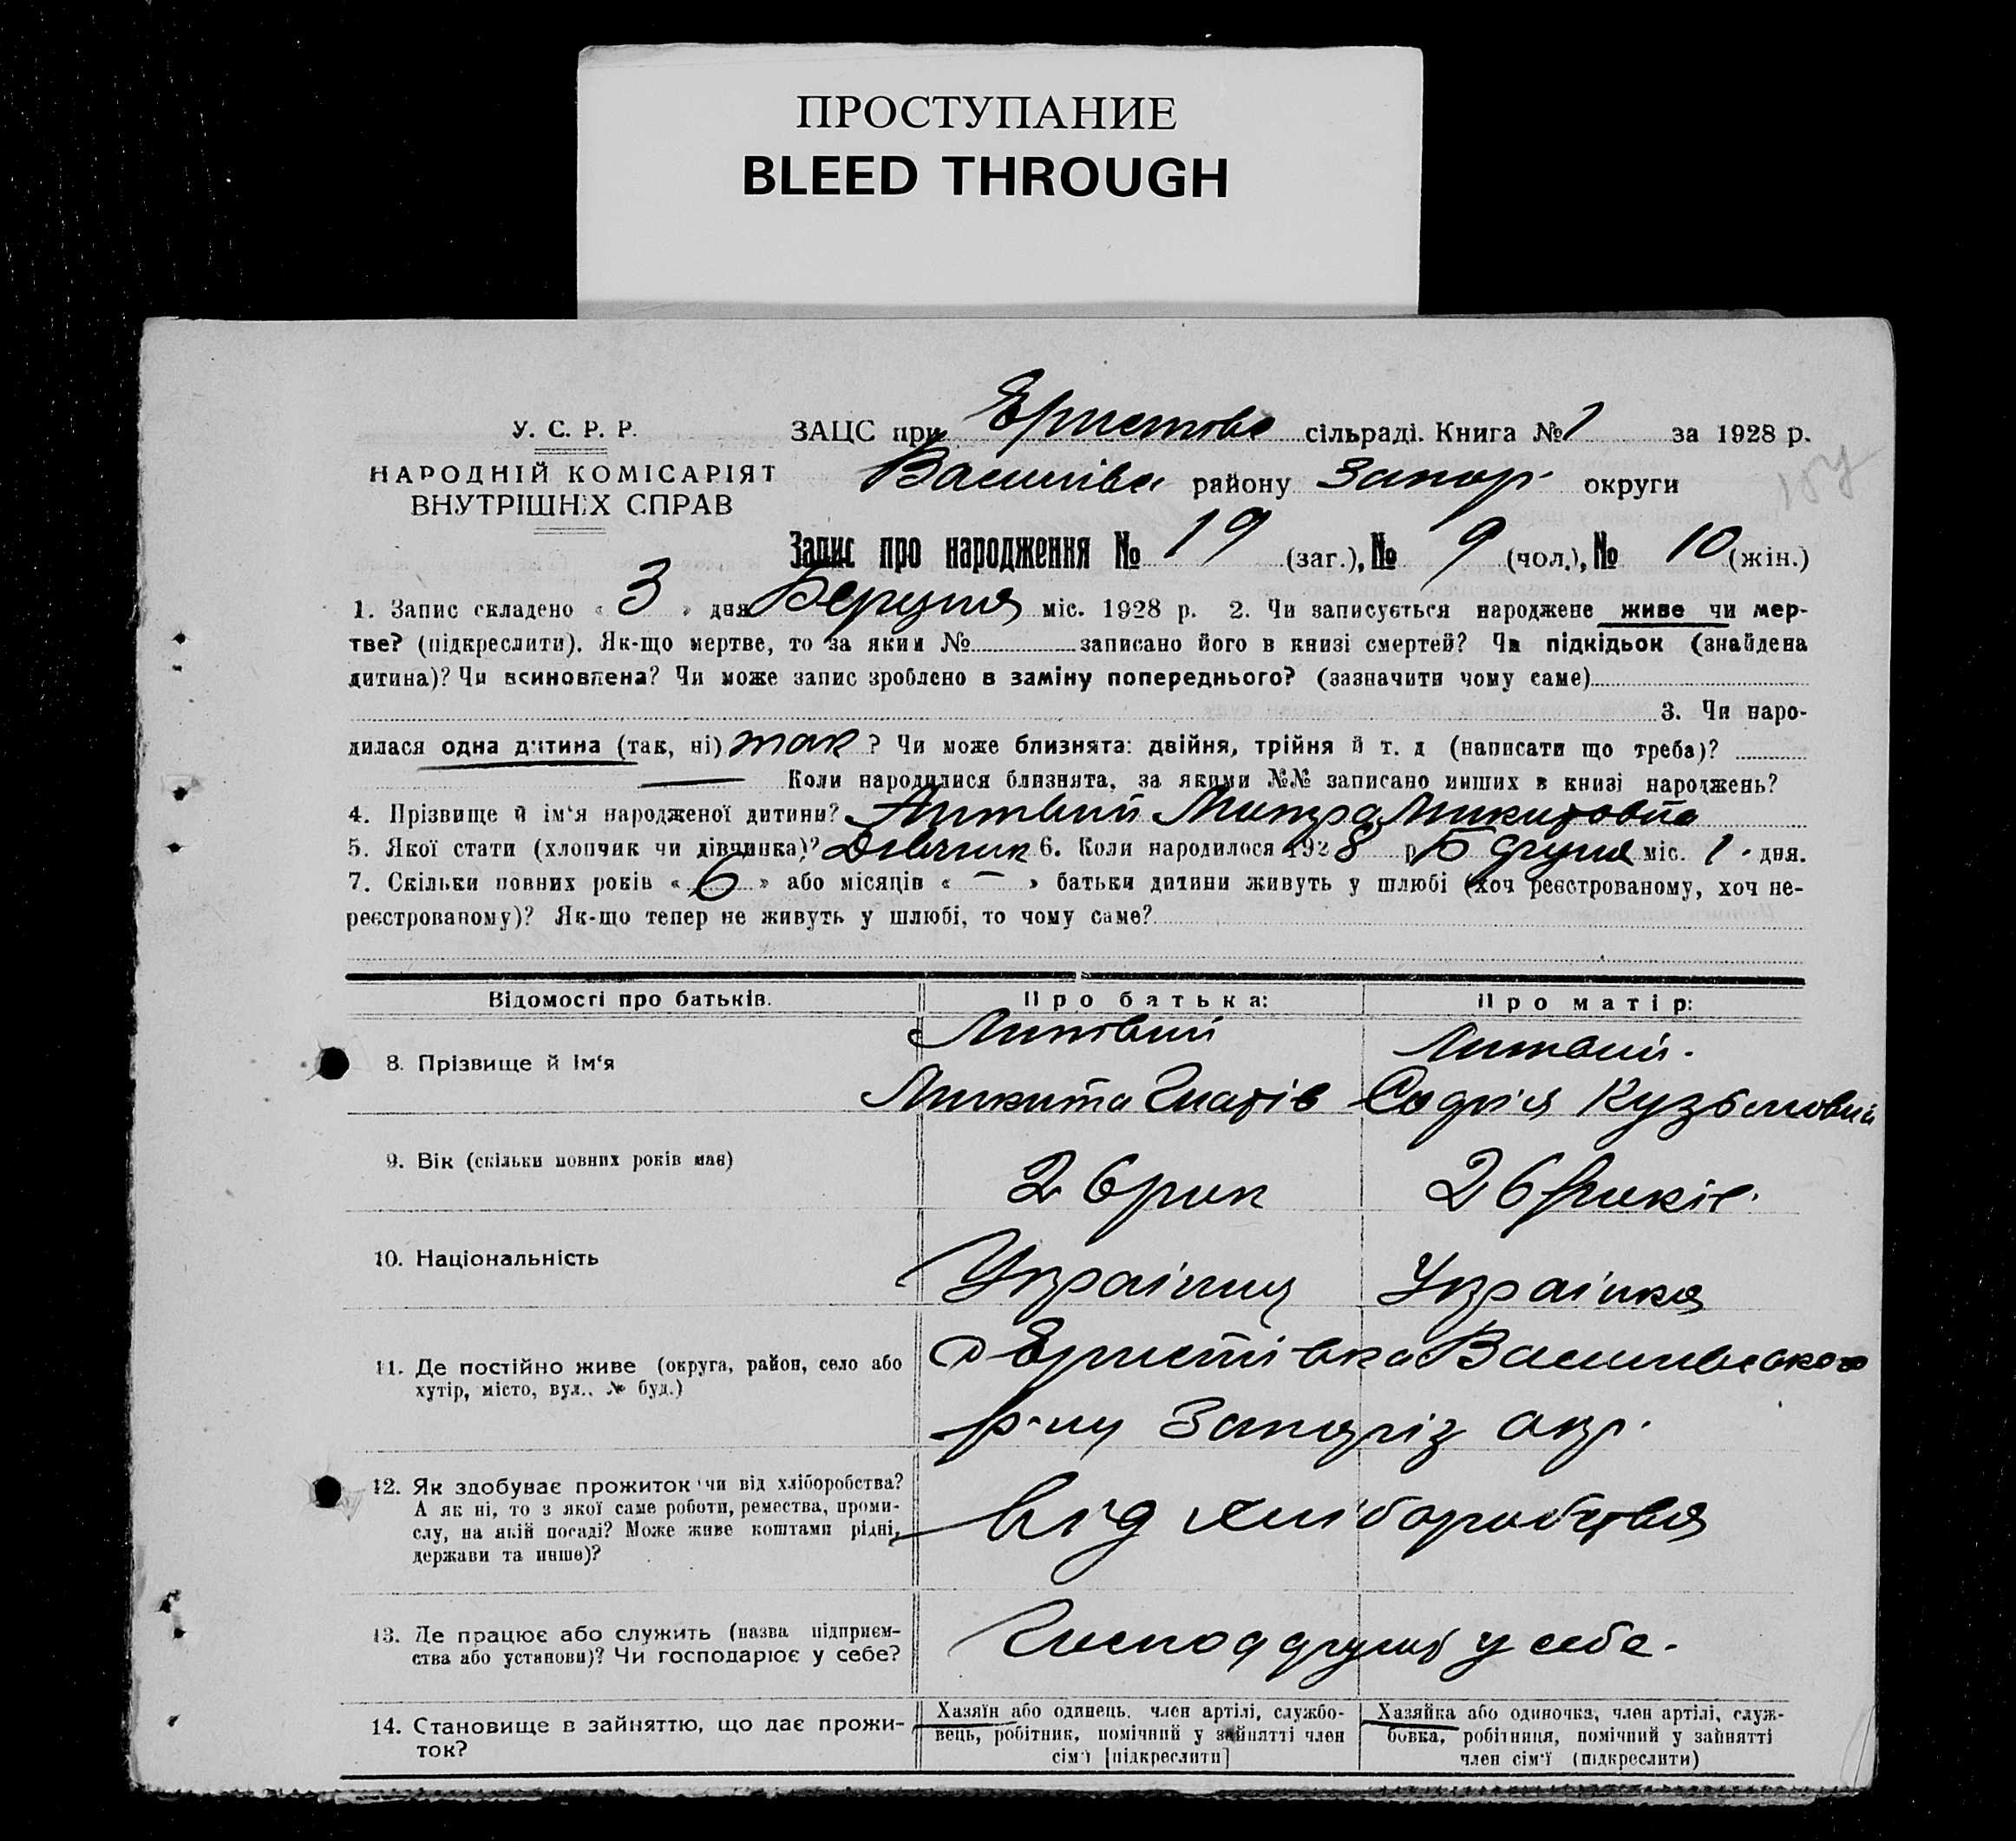 ПРОСТУПАНИЕ
BLEED THROUGH
У. С. Р. Р.
НАРОДНІЙ КОМІСАРІЯТ
ВНУТРІШНІХ СПРАВ
ЗАЦС при Еристово сільраді. Книга № 1 за 1928 р.
Василівс району Запор. округи
Запис про народження № 19 (заг.), № 9 (чол.), № 10 (жін.)
1. Запис складено « 3 » дня Березня міс. 1928 р. 2. Чи записується народжене живе чи мер-
тве? (підкреслити). Як-що мертве, то за яким № записано його в книзі смертей? Чи підкідьок (знайдена
дитина)? Чи всиновлена? Чи може запис зроблено в заміну попереднього? (зазначити чому саме)
3. Чи наро-
дилася одна дитина (так, ні) так ? Чи може близнята: двійня, трійня й т. д (написати що треба)?
Коли народилися близнята, за якими №№ записано инших в книзі народжень?
4. Прізвище й ім‘я народженої дитини? Литвин Микитовна
5. Якої стати (хлопчик чи дівчинка)? 6. Коли народилося 1928 р міс. 1 дня.
7. Скільки повних років « 6 » або місяців « — » батьки дитини живуть у шлюбі (хоч реєстрованому, хоч не-
реєстрованому)? Як-що тепер не живуть у шлюбі, то чому саме?
Відомості про батьків. Про батька: Про матір:
8. Прізвище й ім‘я Литвин Литвин.
Микита Гнатів Софія Кузьмовна
9. Вік (скільки повних років має) 26 рик 26 риків.
10. Національність Украінец Украінка
11. Де постійно живе (округа, район, село або
хутір, місто, вул., № буд.)
Еристівка Василівського
р-ну Запоріз окр.
12. Як здобуває прожиток чи від хліборобства?
А як ні, то з якої саме роботи, ремества, проми-
слу, на якій посаді? Може живе коштами рідні,
держави та инше)?
від хліборобства
13. Де працює або служить (назва підприєм-
ства або установи)? Чи господарює у себе?
у себе.
14. Становище в зайняттю, що дає прожи-
ток?
Хазяїн або одинець, член артілі, службо-
вець, робітник, помічний у зайнятті член
сім‘ї [підкреслити]
Хазяйка або одиночка, член артілі, служ-
бовка, робітниця, помічний у зайнятті
член сім‘ї (підкреслити)